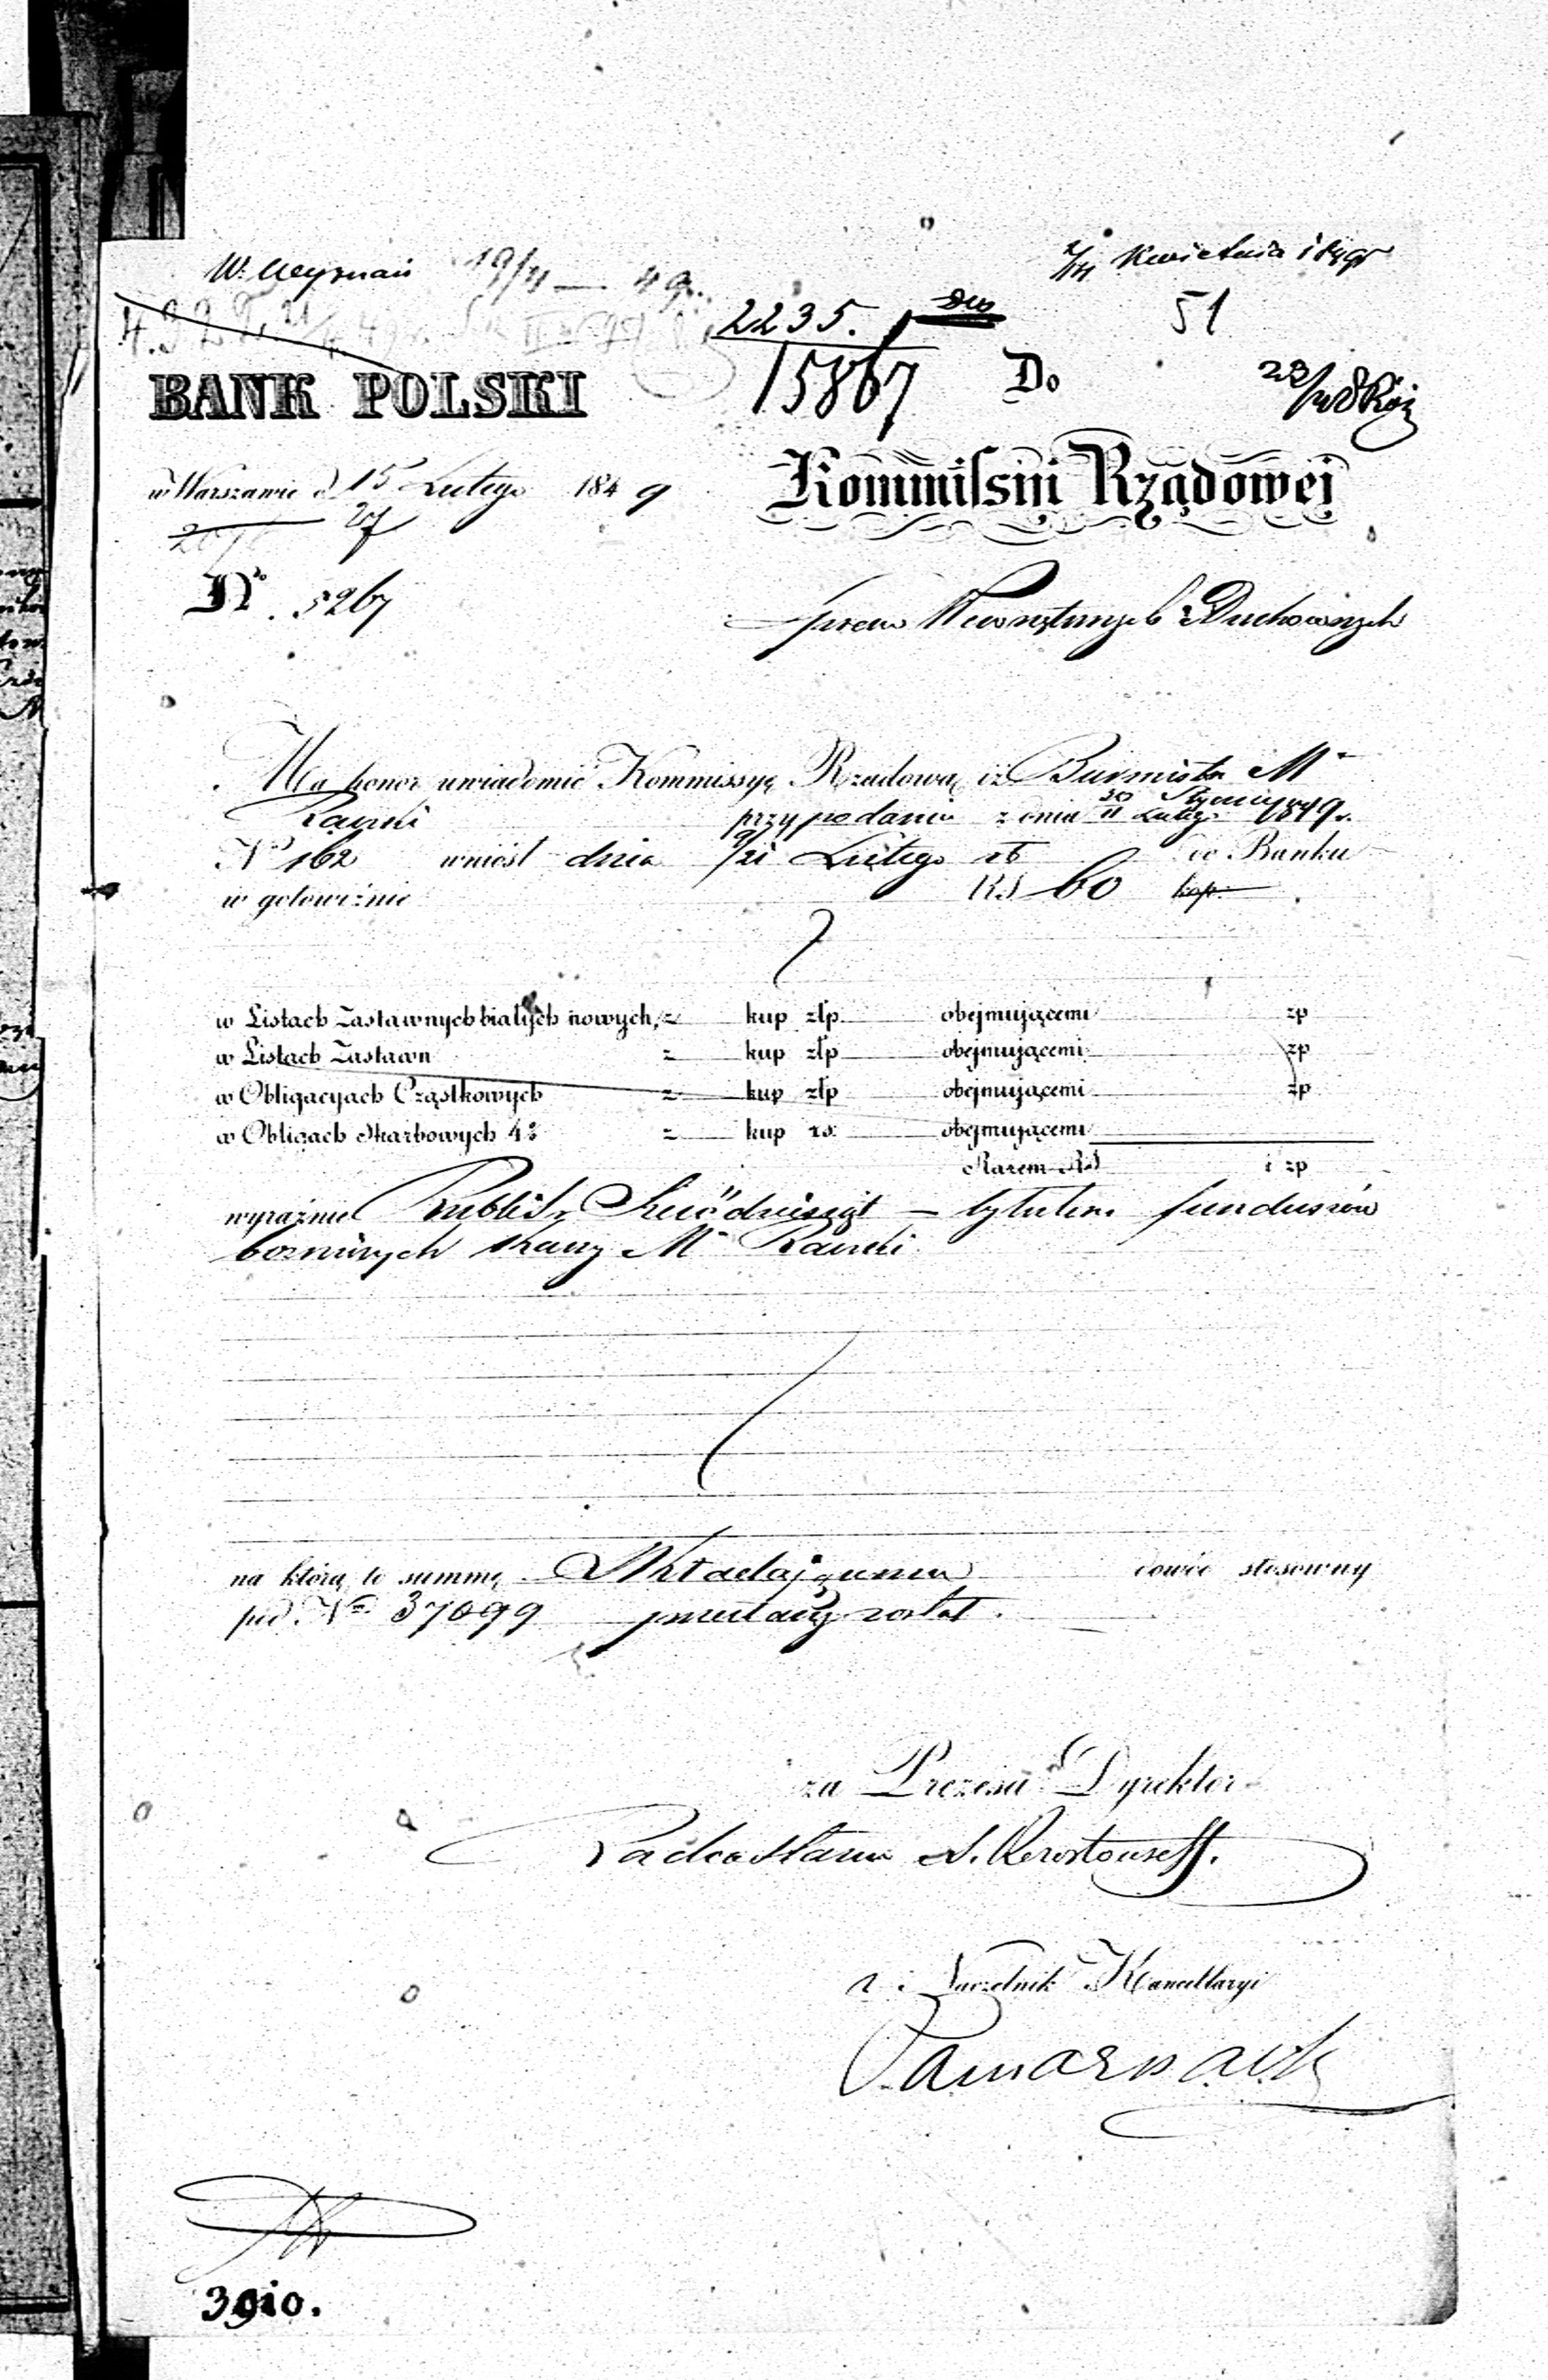 19/4 — 49
Kwietnia 1849
2235.
51
15867
Do
BANK POLSKI
w Warszawie d 15 Lutego 1849
27
Kommissyi Rządowej
No. 5267
Spraw Wewnętrznych i Duchownych
Ma honor uwiadomić Kommissyę Rządową iż Burmistrz Mta
Rawski przy podaniu z dnia 30 Stycznia 11 Lutego 1849 r.
No 162 wniósł dnia 9/21 Lutego rb do Banku
w gotowiźnie RS 60 kop.
w Listach Zastawnych białych nowych, z kup złp obejmującemi zp
w Listach Zastawn z kup złp obejmującemi zp
w Obligacyach Cząstkowych z kup złp obejmującemi zp
w Obligach Skarbowych 4% z kup rs: obejmującemi
Razem RS i zp
wyraźnie Rubli Sr Sześćdziesiąt — tytułem funduszów
bożniczych kassy Mta Rawski
na którą to summę Wkładającemu dowód stosowny
pod No 37099 przesłany został.
za Prezesa Dyrektor
Radca Stanu
Naczelnik Kancellaryi
3910.